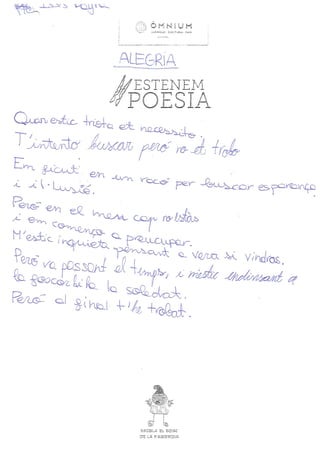 ÒMNIUM
ALEGRIA
ESTENEM
POESIA
Quan estic trista et necessito.
T'intento buscar però no et trobo
Em ficut en un racó per buscar esperança
i il·lusió.
Però en el meu cap no estàs
i em començo a preucupar.
M'estic inquieta pensant a vera si vindras.
Però va passant el temps, i m'estic endinsant a
la foscor hi ha la soledat.
Però al final t'he trobat.
ESCOLA EL ROSER